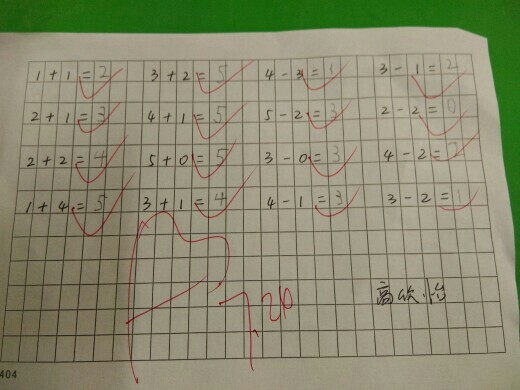 1 + 1 = 2 3 + 2 = 5 4 - 3 = 1 3 - 1 = 2
2 + 1 = 3 4 + 1 = 5 5 - 2 = 3 2 - 2 = 0
2 + 2 = 4 5 + 0 = 5 3 - 0 = 3 4 - 2 = 2
1 + 4 = 5 3 + 1 = 4 4 - 1 = 3 3 - 2 = 1
7.20
高欣怡
404